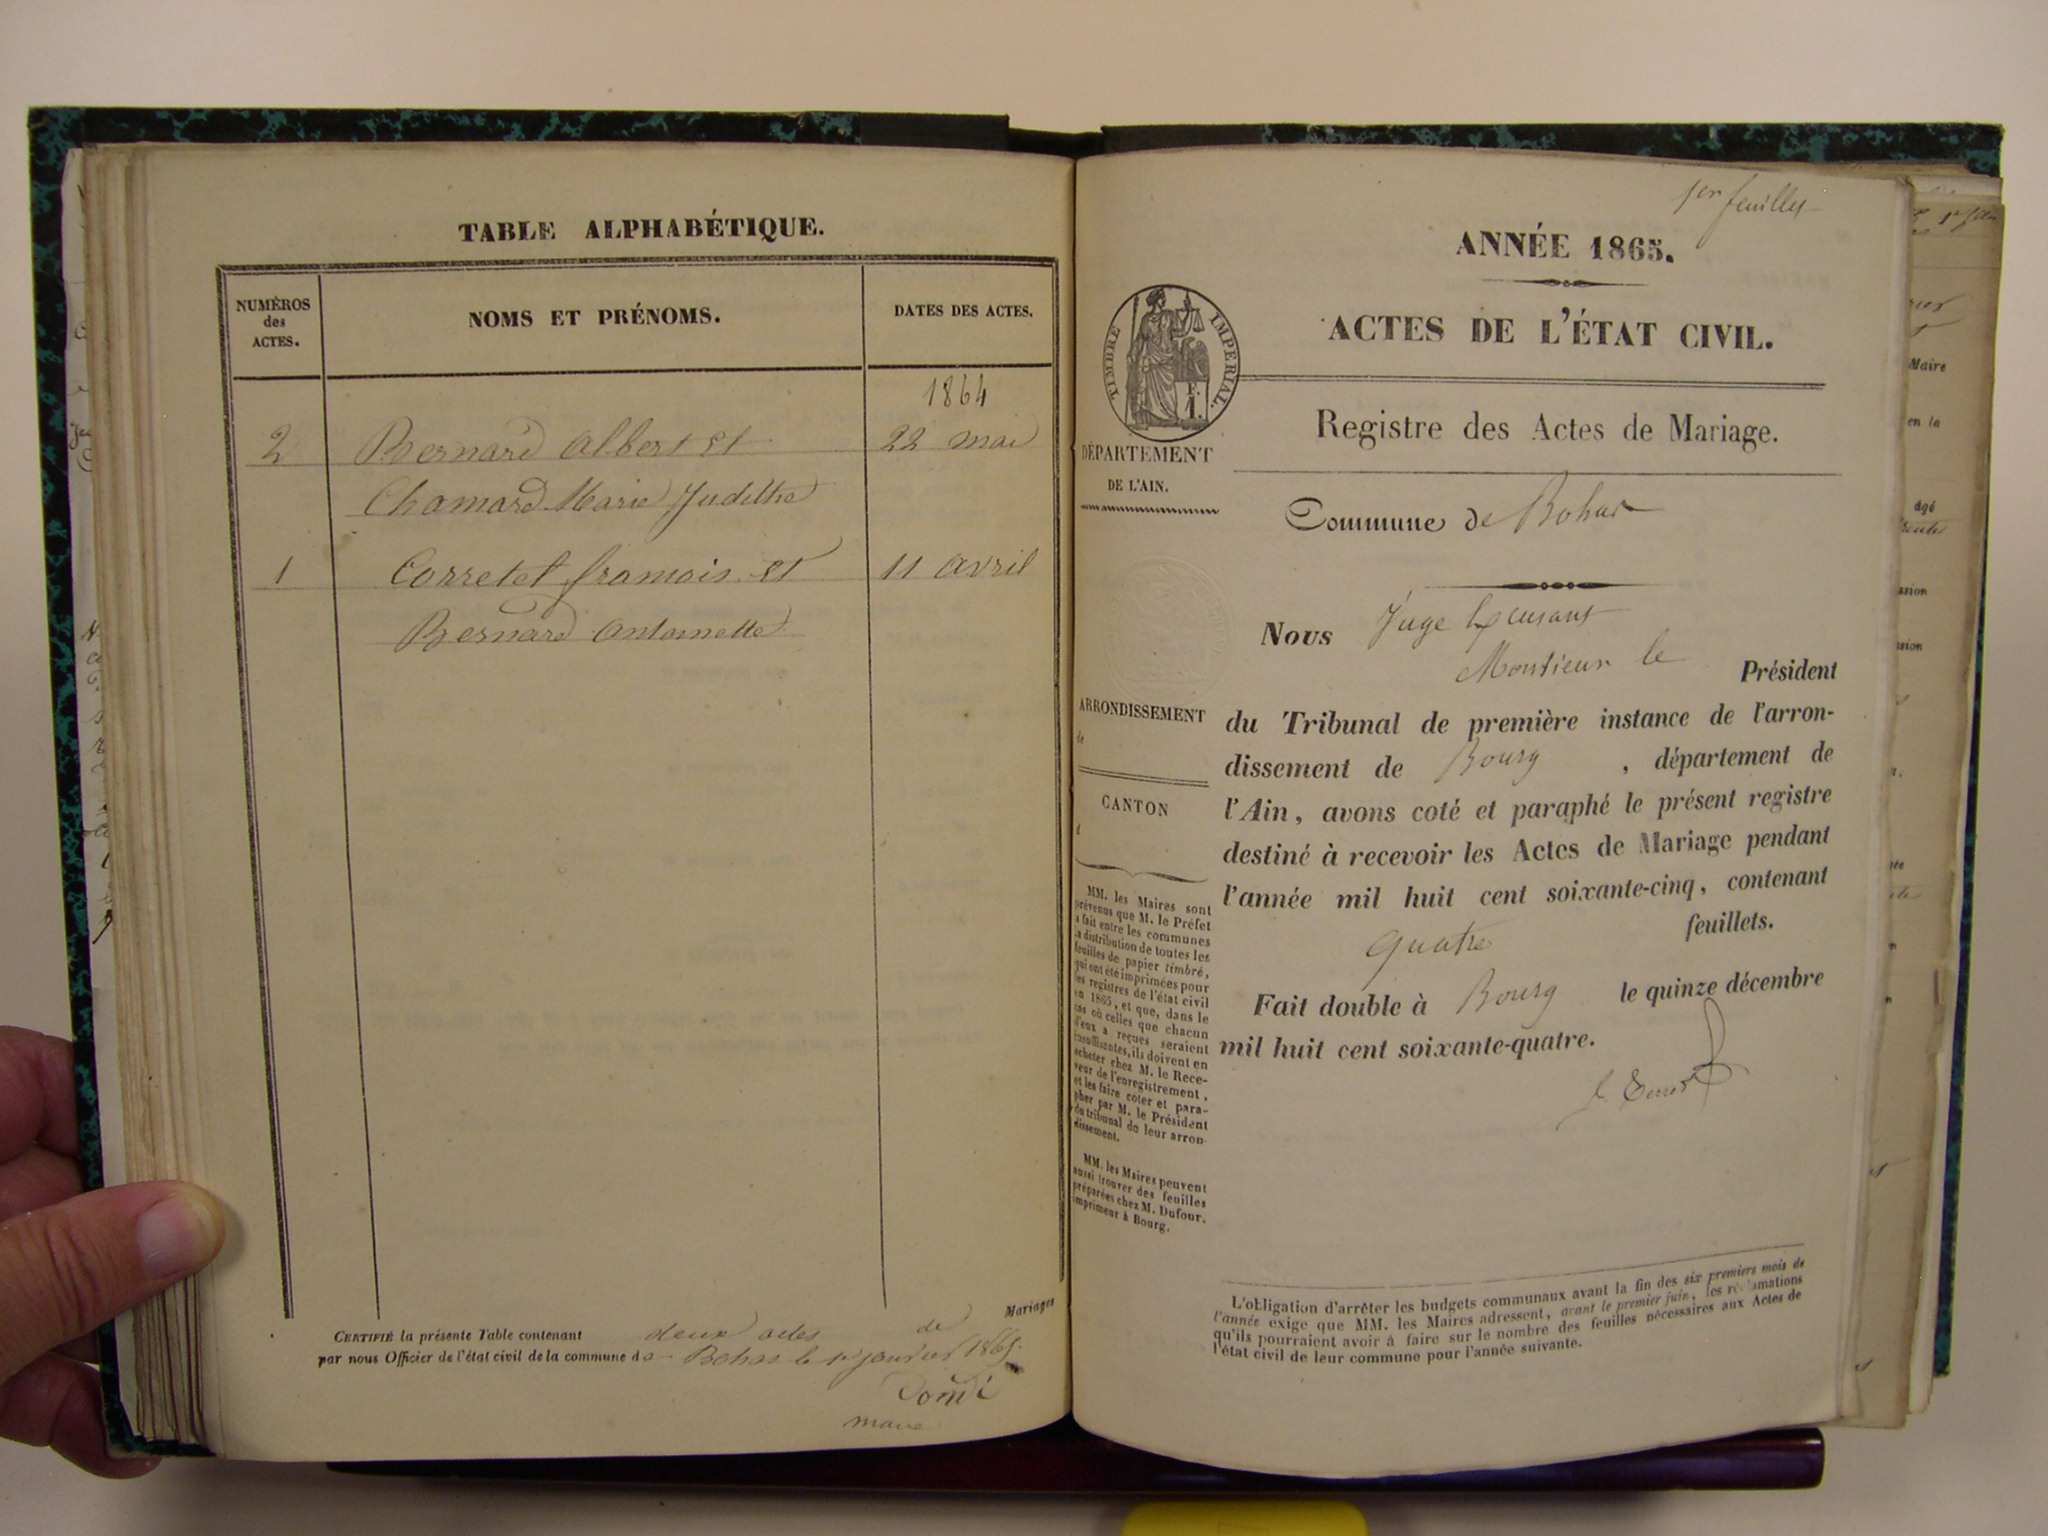 TABLE ALPHABÉTIQUE.
NUMÉROS des ACTES.
NOMS ET PRÉNOMS.
DATES DES ACTES.
1864
2 Bernard Albert et 22 mai
Chamard Marie Judithe
1 Corretel françois et 11 avril
Bernard Antoinette
CERTIFIÉ la présente Table contenant deux actes de Mariages
par nous Officier de l'état civil de la commune de Bohas le 1er janvier 1865
maire
1er feuillet
ANNÉE 1865.
ACTES DE L'ÉTAT CIVIL.
TIMBRE IMPERIAL.
F. 1.
Registre des Actes de Mariage.
DÉPARTEMENT
DE L'AIN.
Commune de Bohas
Nous Juge
Monsieur le Président
ARRONDISSEMENT
de
CANTON
d
du Tribunal de première instance de l'arron-
dissement de Bourg , département de
l'Ain, avons coté et paraphé le présent registre
destiné à recevoir les Actes de Mariage pendant
l'année mil huit cent soixante-cinq, contenant
quatre feuillets.
Fait double à Bourg le quinze décembre
mil huit cent soixante-quatre.
MM. les Maires sont
prévenus que M. le Préfet
a fait entre les communes
la distribution de toutes les
feuilles de papier timbré,
qui ont été imprimées pour
les registres de l'état civil
en 1865, et que, dans le
cas où celles que chacun
d'eux a reçues seraient
insuffisantes, ils doivent en
acheter chez M. le Rece-
veur de l'enregistrement,
et les faire coter et para-
pher par M. le Président
du tribunal de leur arron-
dissement.
MM. les Maires peuvent
aussi trouver des feuilles
préparées chez M. Dufour,
imprimeur à Bourg.
L'obligation d'arrêter les budgets communaux avant la fin des six premiers mois de
l'année exige que MM. les Maires adressent, avant le premier juin, les réclamations
qu'ils pourraient avoir à faire sur le nombre des feuilles nécessaires aux Actes de
l'état civil de leur commune pour l'année suivante.
Maire
en la
âgé